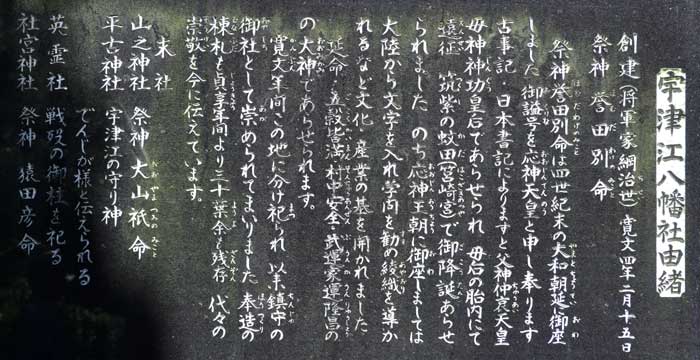 宇津江八幡社由緒
創建(将軍家綱治世)寛文四年二月十五日
祭神 誉田別命
祭神誉田別命は四世紀末の大和朝廷に御座
しました御謚号を応神天皇と申し奉ります
古事記・日本書記によりますと父神仲哀天皇
母神神功皇后であらせられ 母后の胎内にて
遠征 筑紫の蚊田(宮崎宮)で御降誕あらせ
られました のち応神王朝に御座しましては
大陸から文字を入れ学問を勧め綾織を導か
れるなど文化・産業の基を開かれました
延命・五穀皆満・村中安全・武運家運隆昌の
の大神であらせられます。
寛文年間この地に分け祀られ 以来鎮守の
御社として崇められてまいりました 奉造の
棟札も貞享年間より三十葉余も残存 代々の
崇敬を今に伝えています。
末社
山之神社 祭神 大山祇命
平古神社 宇津江の守り神
でんじが様と伝えられる
英霊社 戦歿の御柱を祀る
社宮神社 祭神 猿田彦命